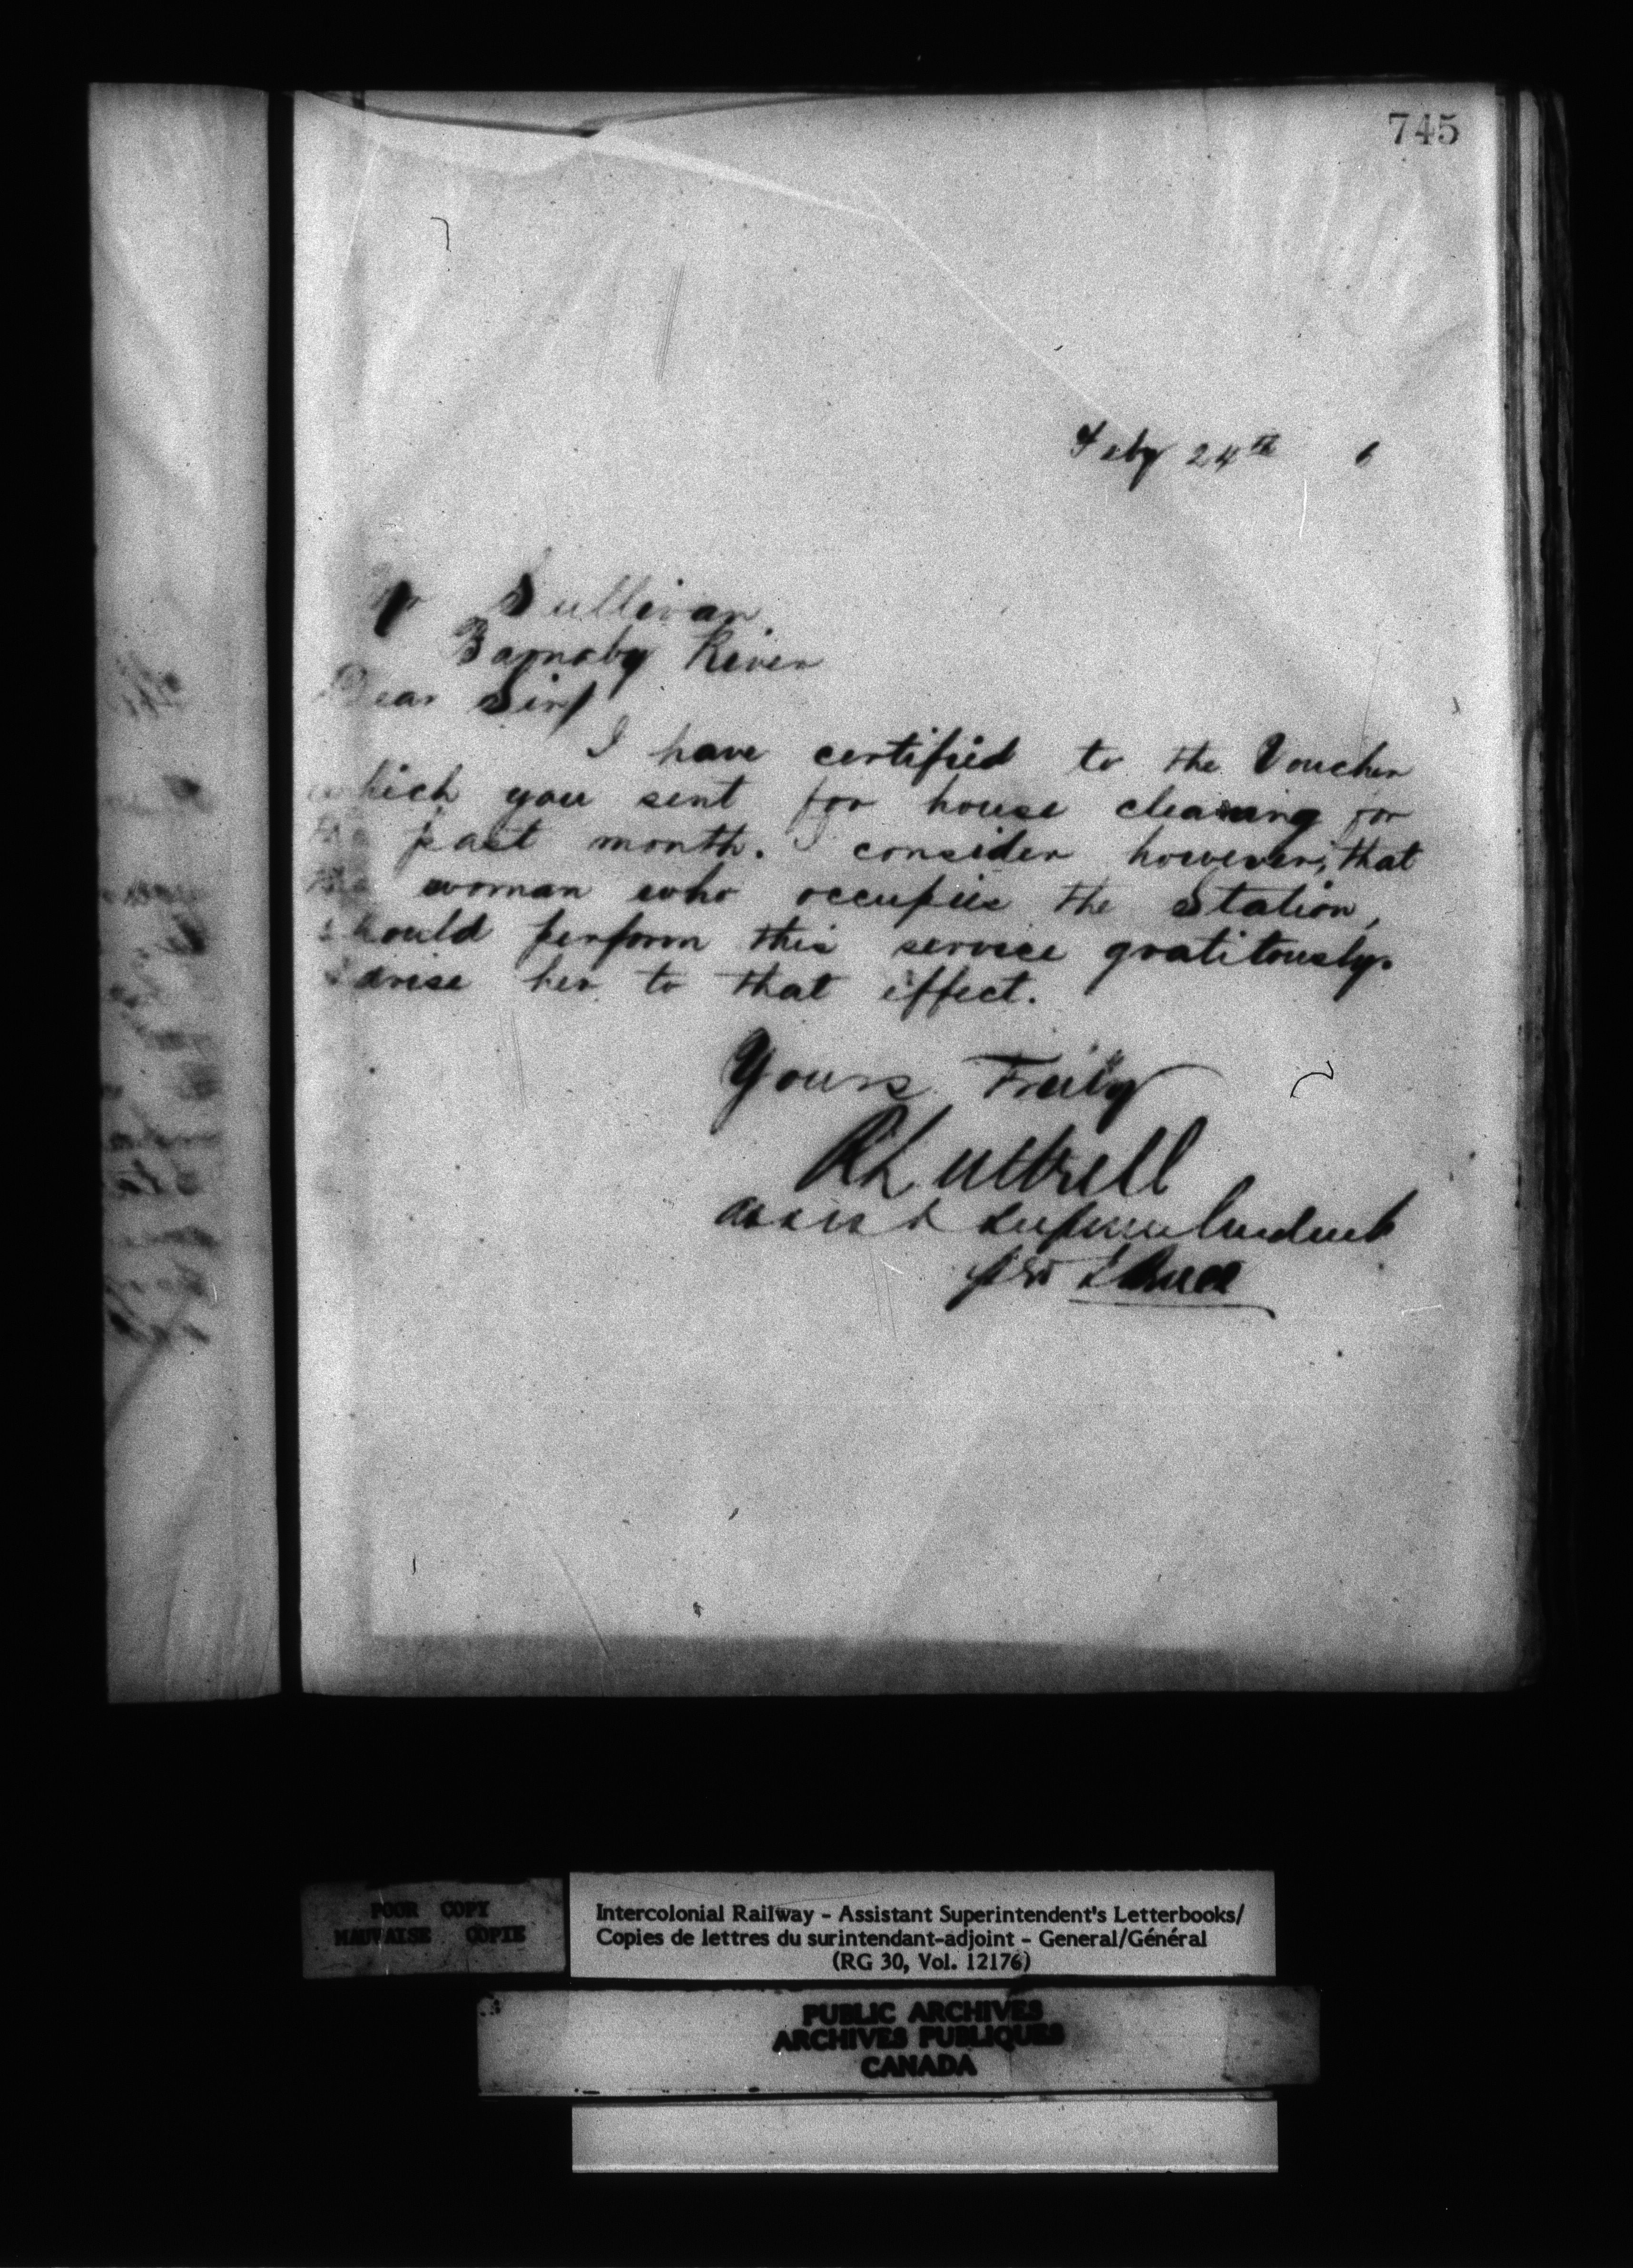 745
Feby 24th 6
Mr Sullivan
Barnaby River
Dear Sir
I have certified to the Voucher
which you sent for house cleaning for
the past month. I consider however, that
the woman who occupies the Station,
should perform this service gratitously.
Advise her to that effect.
Yours Truly
R Luttrell
Assist Superintendent
per
POOR COPY
MAUVAISE COPIE
Intercolonial Railway - Assistant Superintendent's Letterbooks/
Copies de lettres du surintendant-adjoint - General/Général
(RG 30, Vol. 12176)
PUBLIC ARCHIVES
ARCHIVES PUBLIQUES
CANADA